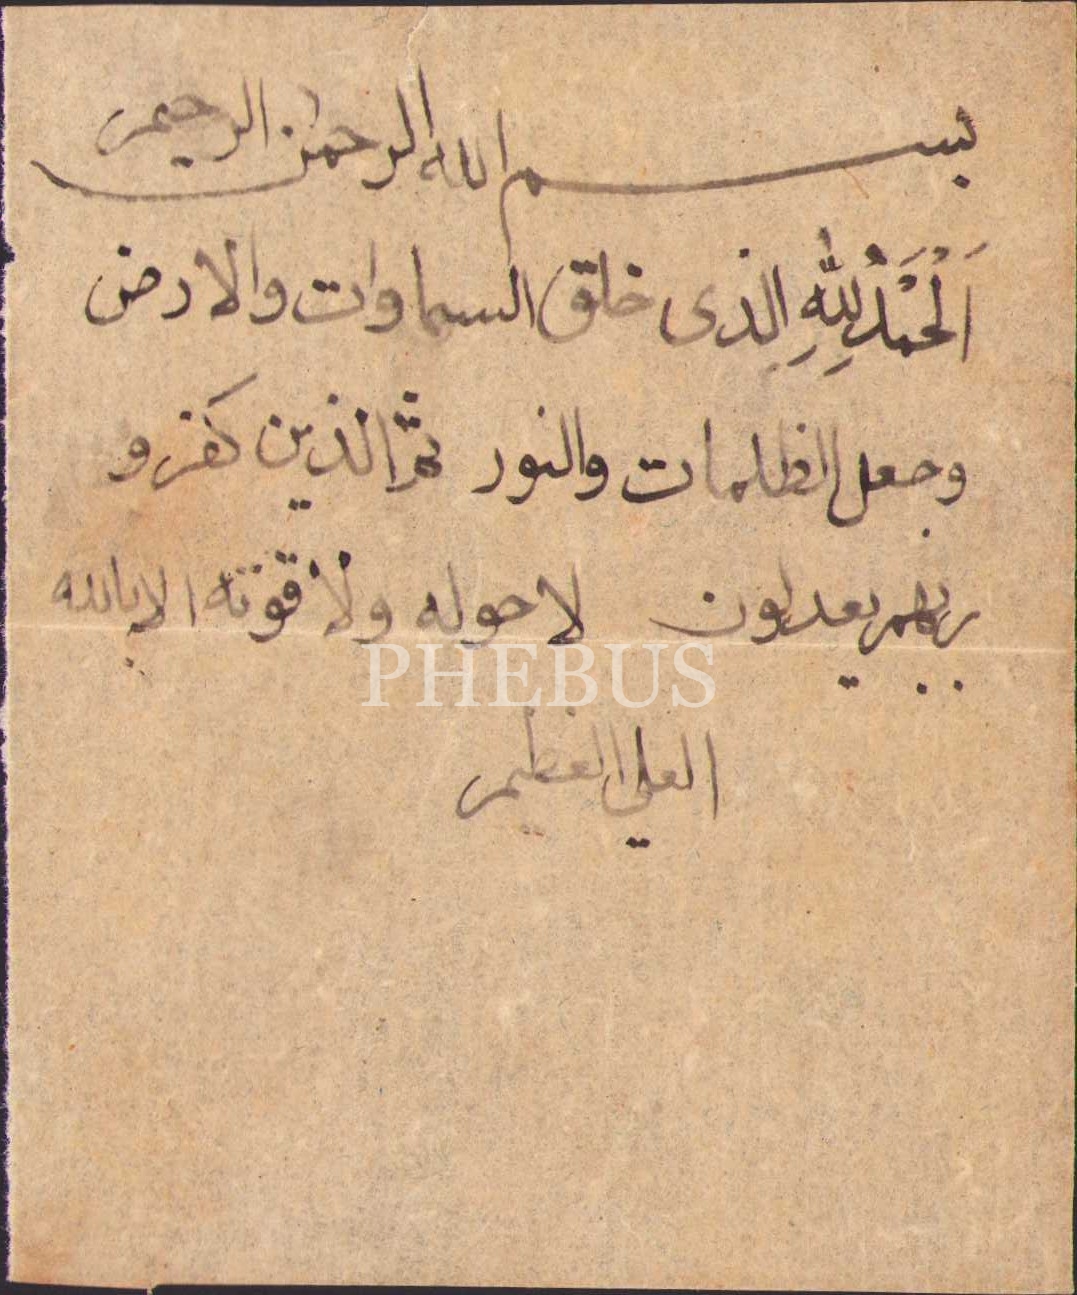 بسم الله الرحمن الرحيم
اَلْحَمْدُ لِلّٰهِ الذى خلق السماوات والارض
وجعل الظلمات والنور ثم الذين كفرو
بربهم يعدلون لا حوله ولا قوته الا بالله
PHEBUS
العلى العظيم